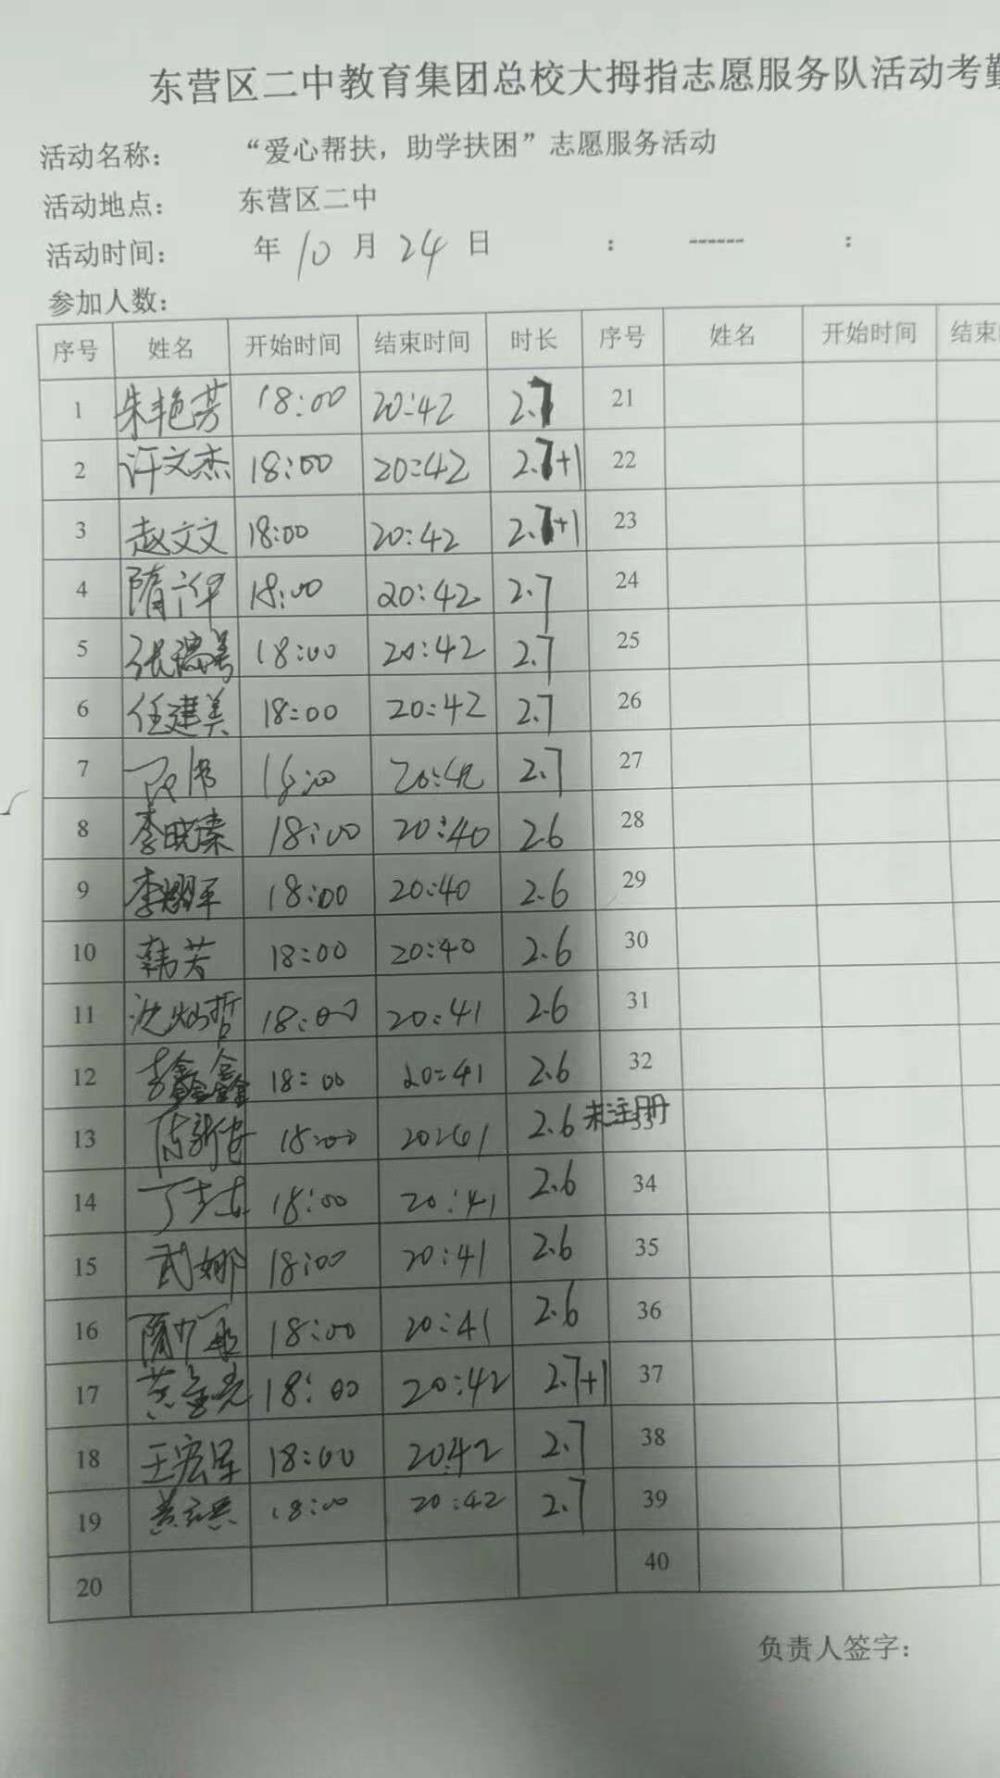 东营区二中教育集团总校大拇指志愿服务队活动考勤
活动名称: “爱心帮扶，助学扶困”志愿服务活动
活动地点: 东营区二中
活动时间: 年 10 月 24 日 : ------ :
参加人数:
序号 姓名 开始时间 结束时间 时长 序号 姓名 开始时间 结束
1 朱艳芳 18:00 20:42 2.7 21
2 许文杰 18:00 20:42 2.7+1 22
3 赵文文 18:00 20:42 2.7+1 23
4 隋 18:00 20:42 2.7 24
5 张瑞美 18:00 20:42 2.7 25
6 任建美 18:00 20:42 2.7 26
7 18:00 20:42 2.7 27
8 李晓臻 18:00 20:40 2.6 28
9 李耀军 18:00 20:40 2.6 29
10 韩芳 18:00 20:40 2.6 30
11 沈灿哲 18:00 20:41 2.6 31
12 李鑫鑫 18:00 20:41 2.6 32
13 陈新 18:00 20:41 2.6 未注册 33
14 丁 18:00 20:41 2.6 34
15 武娜 18:00 20:41 2.6 35
16 隋 18:00 20:41 2.6 36
17 黄金光 18:00 20:42 2.7+1 37
18 王宏军 18:00 20:42 2.7 38
19 黄 18:00 20:42 2.7 39
20 40
负责人签字: